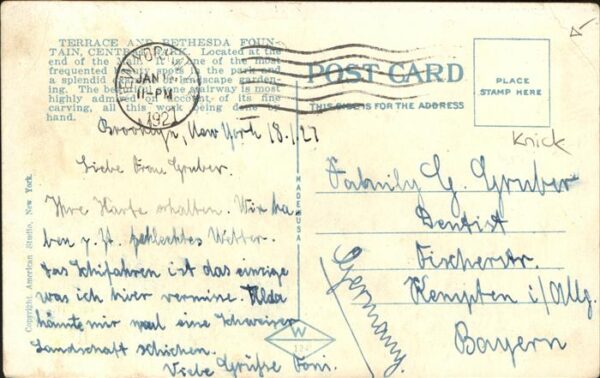 TERRACE AND BETHESDA FOUN-
TAIN, CENTRAL PARK. Located at the
end of the Mall. It is one of the most
frequented beauty spots in the park and
a splendid of landscape garden-
ing. The beautiful stone stairway is most
highly admired on account of its fine
carving, all this work being done by
hand.
JAN 18
11-PM
192
POST CARD
THIS SIDE IS FOR THE ADDRESS
PLACE
STAMP HERE
Knick
Brooklyn, New York 18.1.27
Liebe Frau Gruber.
Ihre Karte erhalten. Wir ha-
ben z. Zt. schlechtes Wetter.
Das Schifahren ist das einzige
was ich hier vermisse.
könnte mir mal eine Schweizer
Landschaft schicken.
Viele Grüße Toni.
MADE IN USA
Copyright American Studio, New York.
W
Family G. Gruber
Dentist
Fischerstr.
Kempten i/Allg.
Bayern
Germany.